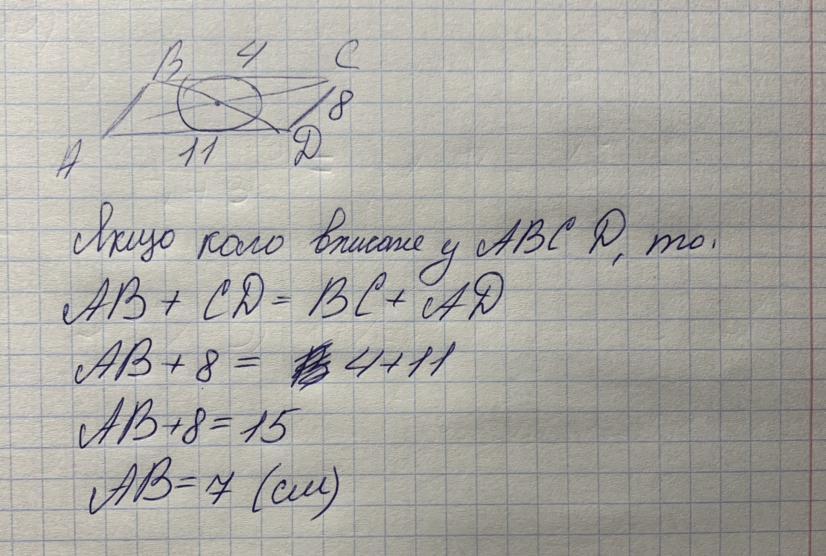 B 4 C
8
A 11 D
Якщо коло вписане у ABCD, то.
AB + CD = BC + AD
AB + 8 = 4 + 11
AB + 8 = 15
AB = 7 (см)